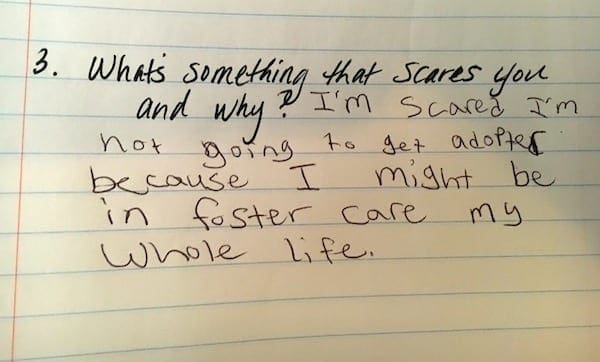 3. What's something that scares you
and why? I'm scared I'm
not going to get adopted
because I might be
in foster care my
whole life.